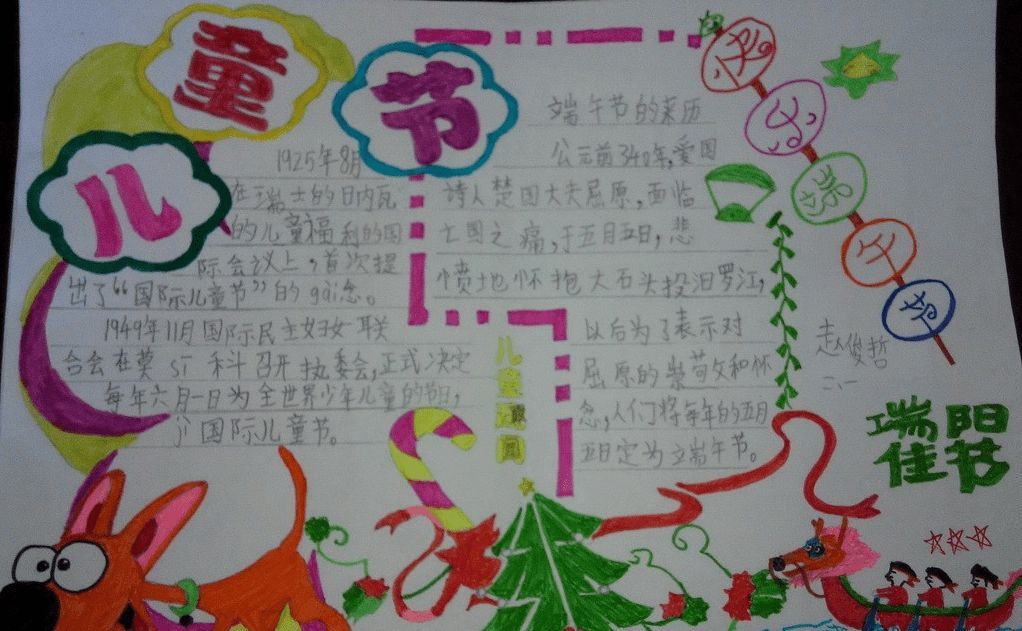 儿童节
1925年8月
在瑞士的日内瓦
的儿童福利的国
际会议上，首次提
出了“国际儿童节”的gài念。
1949年11月国际民主妇女联
合会在莫sī科召开执委会,正式决定
每年六月一日为全世界少年儿童的节日,
jí国际儿童节。
端午节的来历
公元前340年,爱国
詩人楚国大夫屈原，面临
亡国之痛,于五月五日，悲
愤地怀抱大石头投汨罗江,
以后为了表示对
屈原的崇苟攵和怀
念,人们将每年的五月
五日定为立端午节。
儿童
快乐端午节
赵俊哲
二.一
端阳
佳节